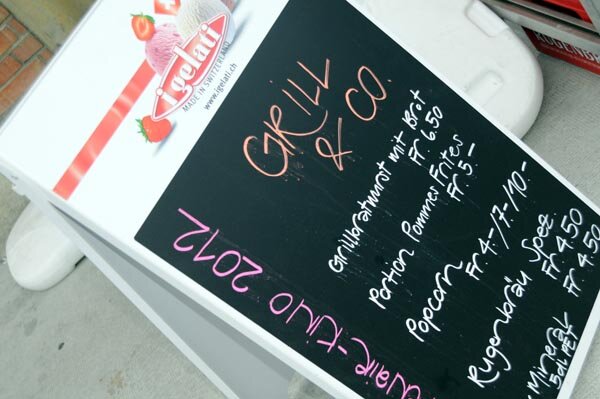 igelati
MADE IN SWITZERLAND
www.igelati.ch
GRILL
& CO.
Grillbratwurst mit Brot
Fr 6.50
Portion Pommes Frites
Fr 5.-
Popcorn
Fr 4.-/7.-/10.-
Rugenbräu Spez
Fr 4.50
Mineral
5dl PET
Fr 4.50
KINO 2012